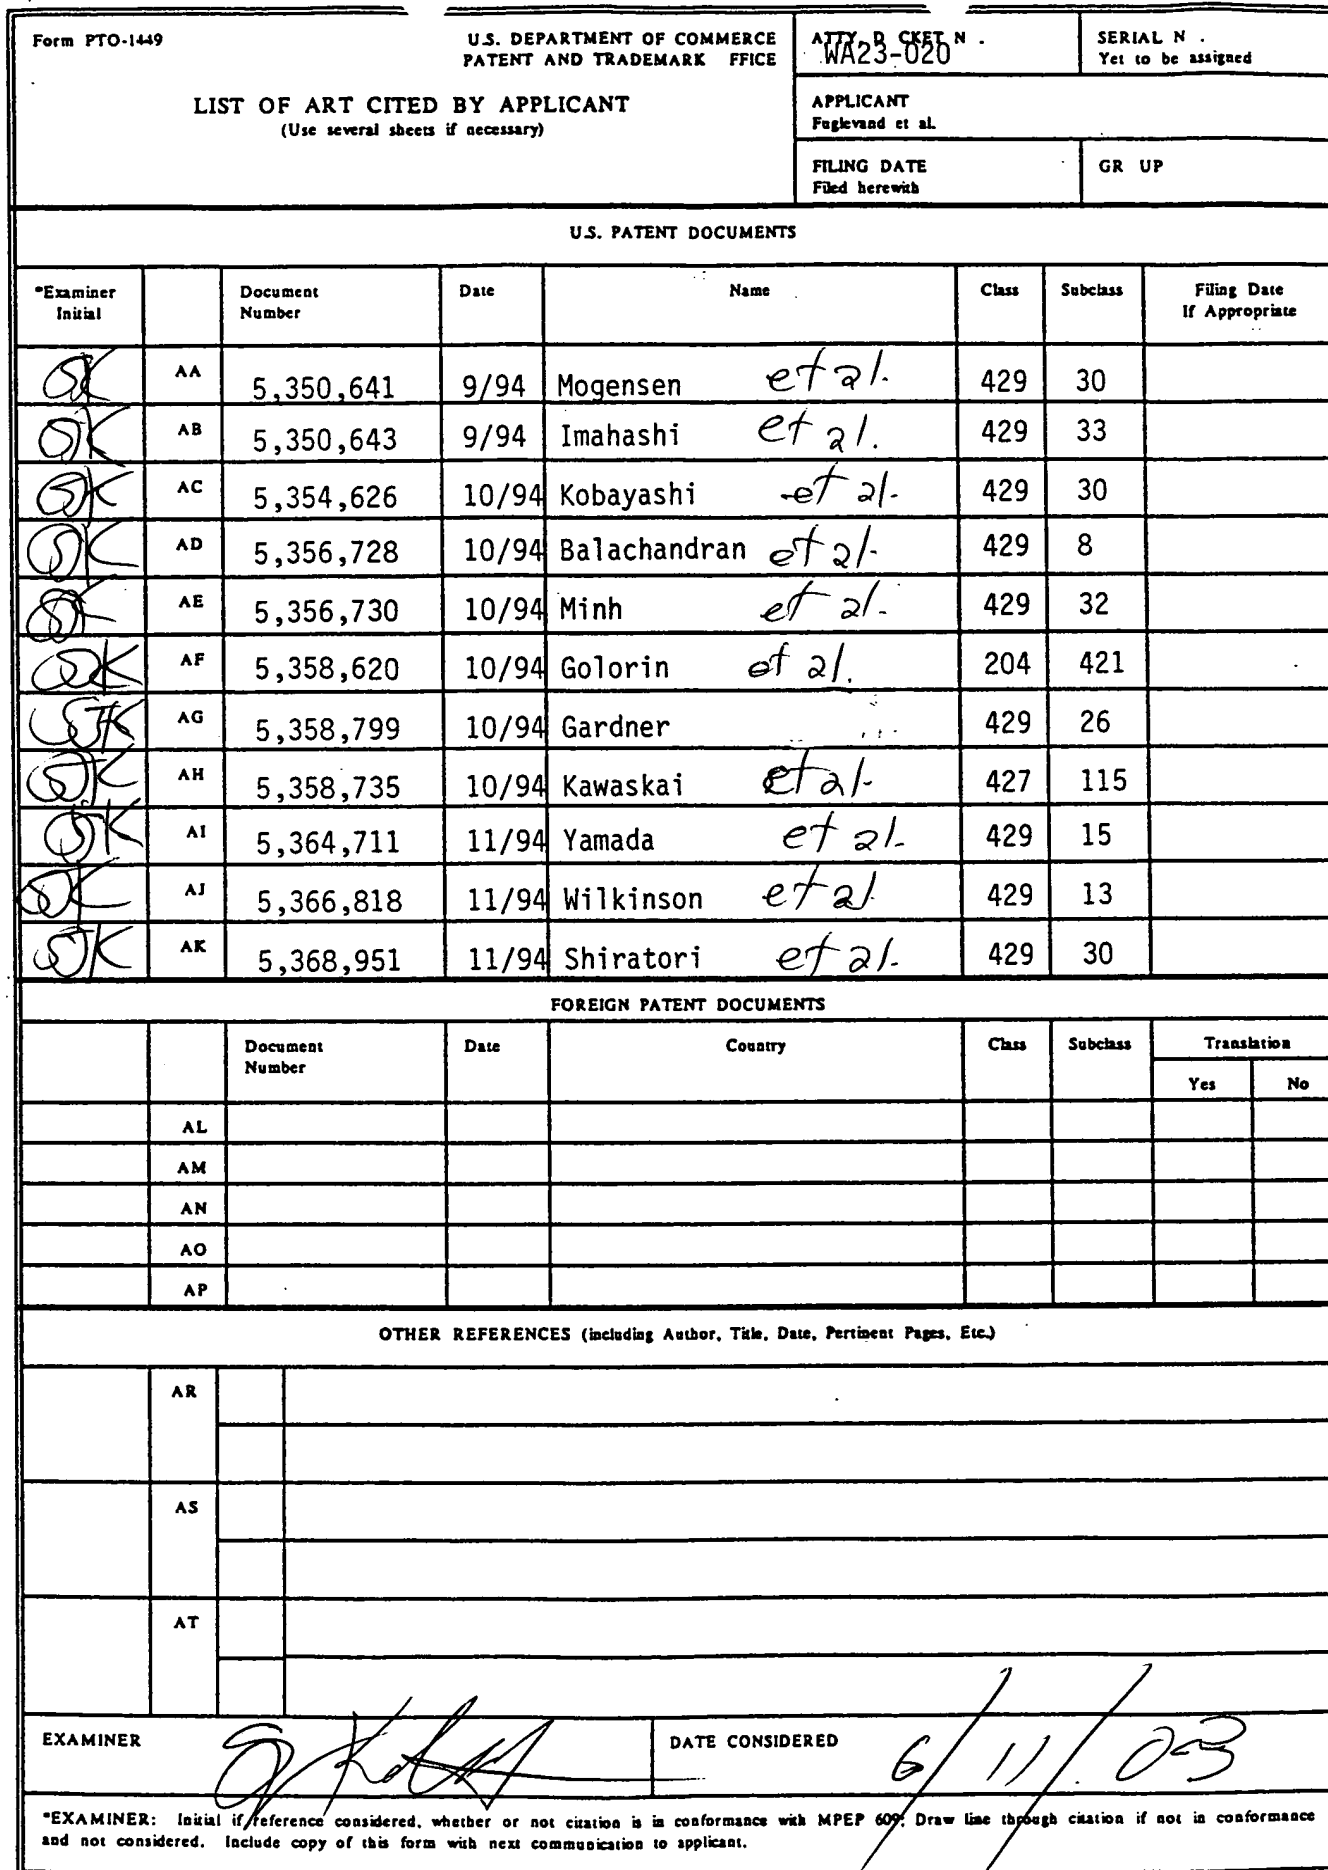 Form PTO-1449
U.S. DEPARTMENT OF COMMERCE
PATENT AND TRADEMARK FFICE
ATTY. D CKET N .
WA23-020
SERIAL N .
Yet to be assigned
LIST OF ART CITED BY APPLICANT
(Use several sheets if necessary)
APPLICANT
Fuglevand et al.
FILING DATE
Filed herewith
GR UP
U.S. PATENT DOCUMENTS
*Examiner Initial Document Number Date Name Class Subclass Filing Date If Appropriate
SK AA 5,350,641 9/94 Mogensen et al. 429 30
SK AB 5,350,643 9/94 Imahashi et al. 429 33
SK AC 5,354,626 10/94 Kobayashi et al. 429 30
SK AD 5,356,728 10/94 Balachandran et al. 429 8
SK AE 5,356,730 10/94 Minh et al. 429 32
SK AF 5,358,620 10/94 Golorin et al. 204 421
SK AG 5,358,799 10/94 Gardner 429 26
SK AH 5,358,735 10/94 Kawaskai et al. 427 115
SK AI 5,364,711 11/94 Yamada et al. 429 15
SK AJ 5,366,818 11/94 Wilkinson et al. 429 13
SK AK 5,368,951 11/94 Shiratori et al. 429 30
FOREIGN PATENT DOCUMENTS
Document Number Date Country Class Subclass Translation
Yes No
AL
AM
AN
AO
AP
OTHER REFERENCES (including Author, Title, Date, Pertinent Pages, Etc.)
AR
AS
AT
EXAMINER
DATE CONSIDERED 6/11/03
*EXAMINER: Initial if reference considered, whether or not citation is in conformance with MPEP 609; Draw line through citation if not in conformance
and not considered. Include copy of this form with next communication to applicant.